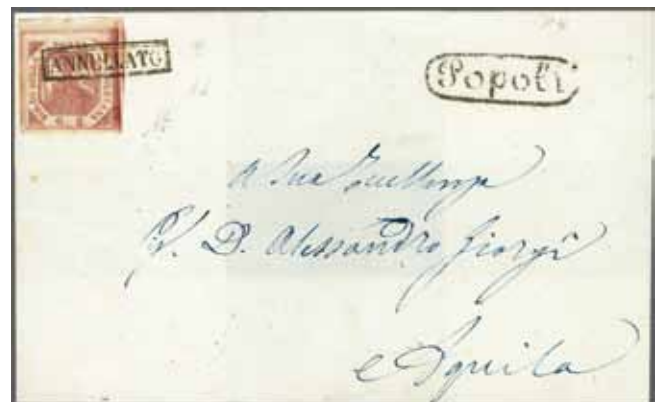 ANNULLATO
Popoli
A Sua Eccellenza
D. Alessandro Giorgi
Aquila